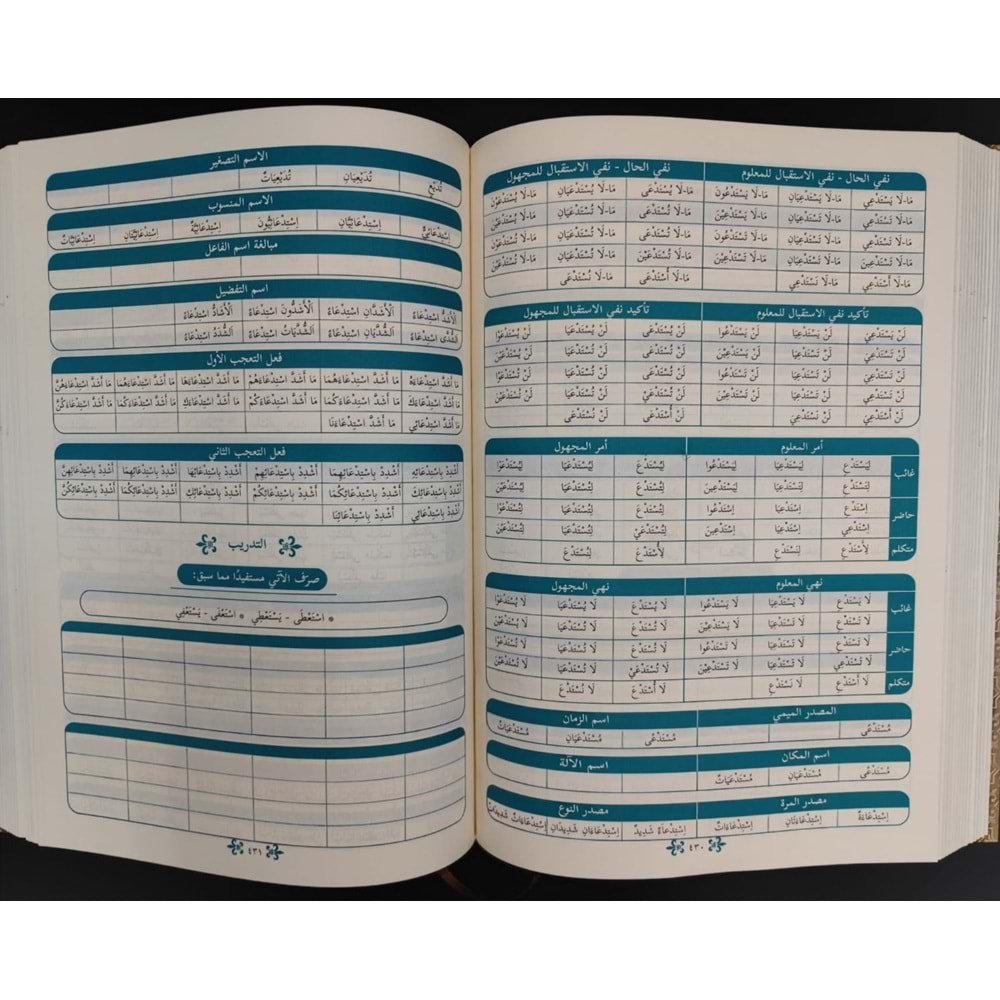 نفي الحال - نفي الاستقبال للمعلوم نفي الحال - نفي الاستقبال للمجهول
مَا-لَا يَسْتَدْعِي مَا-لَا يَسْتَدْعِيَانِ مَا-لَا يَسْتَدْعُونَ مَا-لَا يُسْتَدْعَى مَا-لَا يُسْتَدْعَيَانِ مَا-لَا يُسْتَدْعَوْنَ
مَا-لَا تَسْتَدْعِي مَا-لَا تَسْتَدْعِيَانِ مَا-لَا يَسْتَدْعِينَ مَا-لَا تُسْتَدْعَى مَا-لَا تُسْتَدْعَيَانِ مَا-لَا يُسْتَدْعَيْنَ
مَا-لَا تَسْتَدْعِي مَا-لَا تَسْتَدْعِيَانِ مَا-لَا تَسْتَدْعُونَ مَا-لَا تُسْتَدْعَى مَا-لَا تُسْتَدْعَيَانِ مَا-لَا تُسْتَدْعَوْنَ
مَا-لَا تَسْتَدْعِينَ مَا-لَا تَسْتَدْعِيَانِ مَا-لَا تَسْتَدْعِينَ مَا-لَا تُسْتَدْعَيْنَ مَا-لَا تُسْتَدْعَيَانِ مَا-لَا تُسْتَدْعَيْنَ
مَا-لَا أَسْتَدْعِي مَا-لَا نَسْتَدْعِي مَا-لَا أُسْتَدْعَى مَا-لَا نُسْتَدْعَى
تأكيد نفي الاستقبال للمعلوم تأكيد نفي الاستقبال للمجهول
لَنْ يَسْتَدْعِيَ لَنْ يَسْتَدْعِيَا لَنْ يَسْتَدْعُوا لَنْ يُسْتَدْعَى لَنْ يُسْتَدْعَيَا لَنْ يُسْتَدْعَوْا
لَنْ تَسْتَدْعِيَ لَنْ تَسْتَدْعِيَا لَنْ يَسْتَدْعِينَ لَنْ تُسْتَدْعَى لَنْ تُسْتَدْعَيَا لَنْ يُسْتَدْعَيْنَ
لَنْ تَسْتَدْعِيَ لَنْ تَسْتَدْعِيَا لَنْ تَسْتَدْعُوا لَنْ تُسْتَدْعَى لَنْ تُسْتَدْعَيَا لَنْ تُسْتَدْعَوْا
لَنْ تَسْتَدْعِي لَنْ تَسْتَدْعِيَا لَنْ تَسْتَدْعِينَ لَنْ تُسْتَدْعَيْ لَنْ تُسْتَدْعَيَا لَنْ تُسْتَدْعَيْنَ
لَنْ أَسْتَدْعِيَ لَنْ نَسْتَدْعِيَ لَنْ أُسْتَدْعَى لَنْ نُسْتَدْعَى
أمر المعلوم أمر المجهول
غائب لِيَسْتَدْعِ لِيَسْتَدْعِيَا لِيَسْتَدْعُوا لِيُسْتَدْعَ لِيُسْتَدْعَيَا لِيُسْتَدْعَوْا
لِتَسْتَدْعِ لِتَسْتَدْعِيَا لِيَسْتَدْعِينَ لِتُسْتَدْعَ لِتُسْتَدْعَيَا لِيُسْتَدْعَيْنَ
حاضر اِسْتَدْعِ اِسْتَدْعِيَا اِسْتَدْعُوا لِتُسْتَدْعَ لِتُسْتَدْعَيَا لِتُسْتَدْعَوْا
اِسْتَدْعِي اِسْتَدْعِيَا اِسْتَدْعِينَ لِتُسْتَدْعَيْ لِتُسْتَدْعَيَا لِتُسْتَدْعَيْنَ
متكلم لِأَسْتَدْعِ لِنَسْتَدْعِ لِأُسْتَدْعَ لِنُسْتَدْعَ
نهي المعلوم نهي المجهول
غائب لَا يَسْتَدْعِ لَا يَسْتَدْعِيَا لَا يَسْتَدْعُوا لَا يُسْتَدْعَ لَا يُسْتَدْعَيَا لَا يُسْتَدْعَوْا
لَا تَسْتَدْعِ لَا تَسْتَدْعِيَا لَا يَسْتَدْعِينَ لَا تُسْتَدْعَ لَا تُسْتَدْعَيَا لَا يُسْتَدْعَيْنَ
حاضر لَا تَسْتَدْعِ لَا تَسْتَدْعِيَا لَا تَسْتَدْعُوا لَا تُسْتَدْعَ لَا تُسْتَدْعَيَا لَا تُسْتَدْعَوْا
لَا تَسْتَدْعِي لَا تَسْتَدْعِيَا لَا تَسْتَدْعِينَ لَا تُسْتَدْعَيْ لَا تُسْتَدْعَيَا لَا تُسْتَدْعَيْنَ
متكلم لَا أَسْتَدْعِ لَا نَسْتَدْعِ لَا أُسْتَدْعَ لَا نُسْتَدْعَ
المصدر الميمي اسم الزمان
مُسْتَدْعًى مُسْتَدْعًى مُسْتَدْعَيَانِ مُسْتَدْعَيَاتٌ
اسم المكان اسم الآلة
مُسْتَدْعًى مُسْتَدْعَيَانِ مُسْتَدْعَيَاتٌ
مصدر المرة مصدر النوع
اِسْتِدْعَاءَةٌ اِسْتِدْعَاءَتَانِ اِسْتِدْعَاءَاتٌ اِسْتِدْعَاءٌ شَدِيدٌ اِسْتِدْعَاءَانِ شَدِيدَانِ اِسْتِدْعَاءَاتٌ شَدِيدَاتٌ
٤٣٠
الاسم التصغير
تُدَيْعٍ تُدَيْعِيَانِ تُدَيْعِيَاتٌ
الاسم المنسوب
اِسْتِدْعَائِيٌّ اِسْتِدْعَائِيَّانِ اِسْتِدْعَائِيُّونَ اِسْتِدْعَائِيَّةٌ اِسْتِدْعَائِيَّتَانِ اِسْتِدْعَائِيَّاتٌ
مبالغة اسم الفاعل
اسم التفضيل
اَلْأَشَدُّ اسْتِدْعَاءً اَلْأَشَدَّانِ اسْتِدْعَاءً اَلْأَشَدُّونَ اسْتِدْعَاءً اَلْأَشَادُّ اسْتِدْعَاءً
اَلشُّدَّى اسْتِدْعَاءً اَلشُّدَّيَانِ اسْتِدْعَاءً اَلشُّدَّيَاتُ اسْتِدْعَاءً اَلشُّدَدُ اسْتِدْعَاءً
فعل التعجب الأول
مَا أَشَدَّ اسْتِدْعَاءَهُ مَا أَشَدَّ اسْتِدْعَاءَهُمَا مَا أَشَدَّ اسْتِدْعَاءَهُمْ مَا أَشَدَّ اسْتِدْعَاءَهَا مَا أَشَدَّ اسْتِدْعَاءَهُمَا مَا أَشَدَّ اسْتِدْعَاءَهُنَّ
مَا أَشَدَّ اسْتِدْعَاءَكَ مَا أَشَدَّ اسْتِدْعَاءَكُمَا مَا أَشَدَّ اسْتِدْعَاءَكُمْ مَا أَشَدَّ اسْتِدْعَاءَكِ مَا أَشَدَّ اسْتِدْعَاءَكُمَا مَا أَشَدَّ اسْتِدْعَاءَكُنَّ
مَا أَشَدَّ اسْتِدْعَائِي مَا أَشَدَّ اسْتِدْعَاءَنَا
فعل التعجب الثاني
أَشْدِدْ بِاسْتِدْعَائِهِ أَشْدِدْ بِاسْتِدْعَائِهِمَا أَشْدِدْ بِاسْتِدْعَائِهِمْ أَشْدِدْ بِاسْتِدْعَائِهَا أَشْدِدْ بِاسْتِدْعَائِهِمَا أَشْدِدْ بِاسْتِدْعَائِهِنَّ
أَشْدِدْ بِاسْتِدْعَائِكَ أَشْدِدْ بِاسْتِدْعَائِكُمَا أَشْدِدْ بِاسْتِدْعَائِكُمْ أَشْدِدْ بِاسْتِدْعَائِكِ أَشْدِدْ بِاسْتِدْعَائِكُمَا أَشْدِدْ بِاسْتِدْعَائِكُنَّ
أَشْدِدْ بِاسْتِدْعَائِي أَشْدِدْ بِاسْتِدْعَائِنَا
التدريب
صرّف الآتي مستفيدًا مما سبق:
* اسْتَعْطَى - يَسْتَعْطِي * اسْتَعْفَى - يَسْتَعْفِي
٤٣١